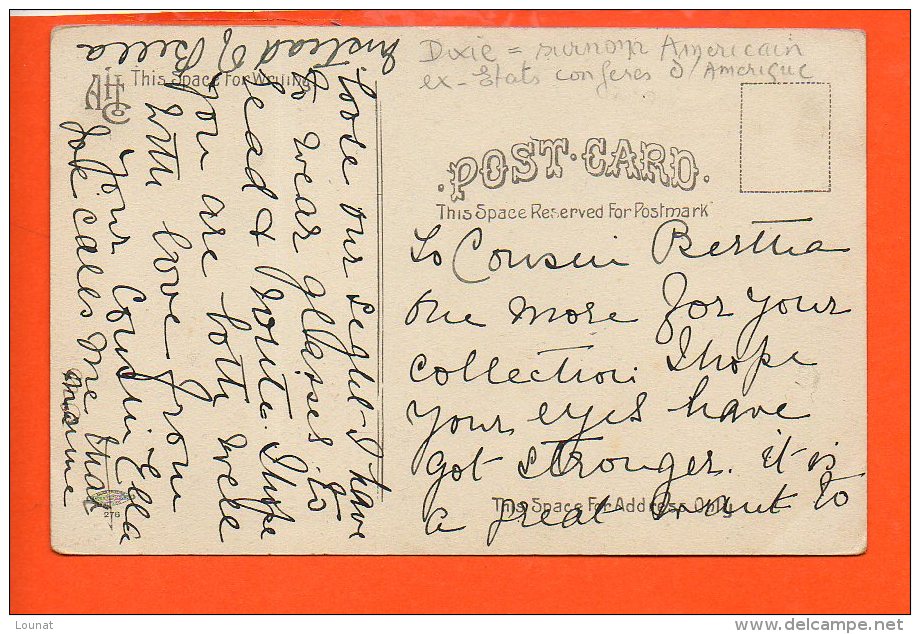 Dixie = surnom Americain
ex-Etats conferes d'Amerique
POST CARD.
This Space Reserved For Postmark
To Cousin Bertha
one more for your
collection. I hope
your eyes have
got stronger. it is
a great want to
This Space For Address Only
This Space For Writing
loose our seght. I have
to wear glasses to
read & write. I hope
you are both well
with love from
your cousin Ella
Jake calls me that
name
instead of Bella
276
Lounat
www.delcampe.net